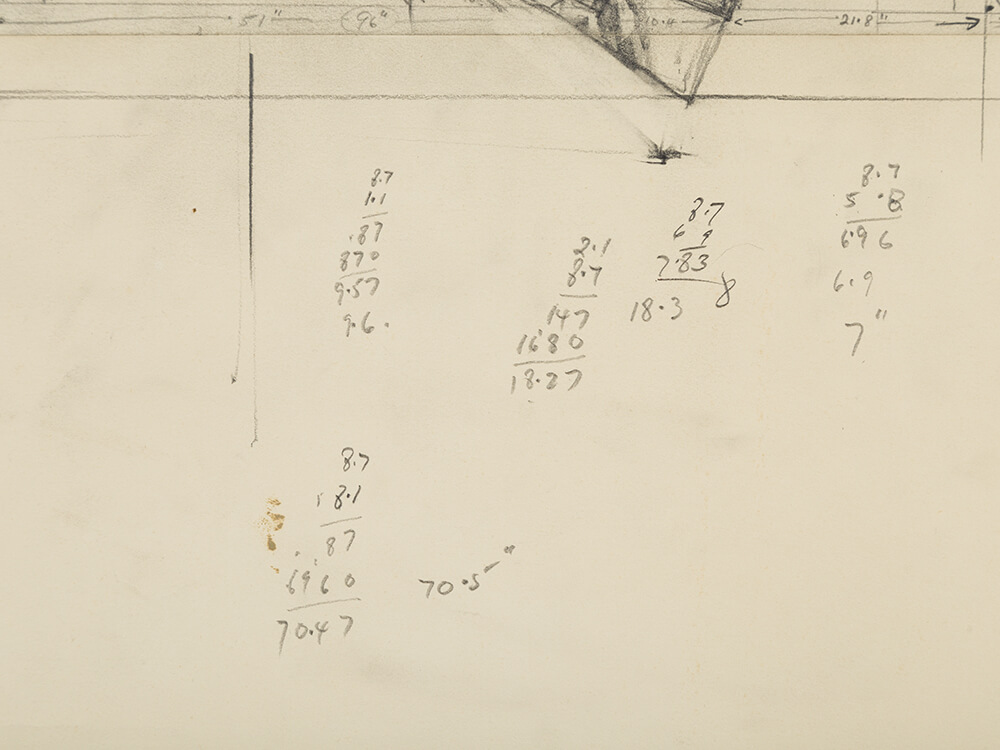 51" (96" 10.4 21.8"
8.7
1.1
.87
870
9.57
9.6.
2.1
8.7
147
1680
18.27
8.7
9
7.83
18.3
8
8.7
5.8
6.96
6.9
7"
8.7
8.1
87
6960
70.47
70.5"